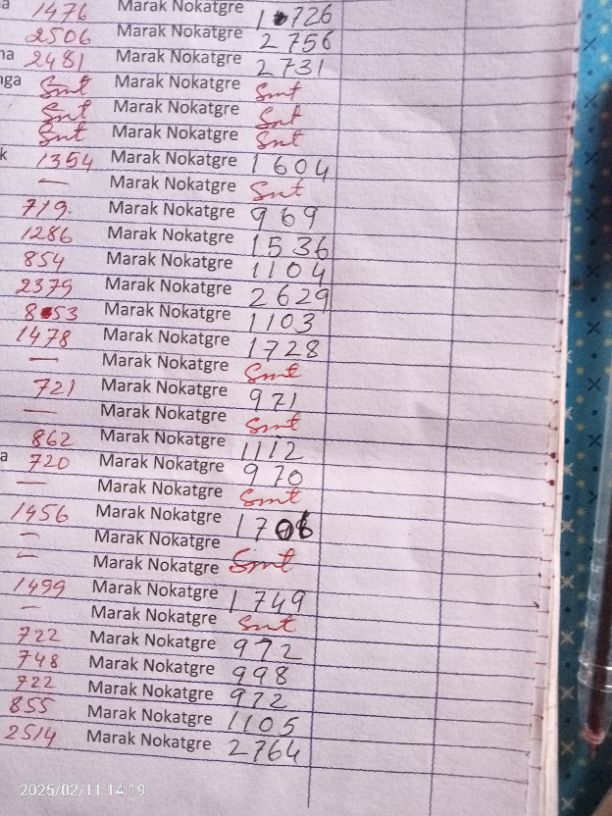 a 1476 Marak Nokatgre 1726
2506 Marak Nokatgre 2756
na 2481 Marak Nokatgre 2731
nga Smt Marak Nokatgre Smt
Snt Marak Nokatgre Snt
Snt Marak Nokatgre Snt
k 1354 Marak Nokatgre 1604
— Marak Nokatgre Snt
719. Marak Nokatgre 969
1286 Marak Nokatgre 1536
854 Marak Nokatgre 1104
2379 Marak Nokatgre 2629
853 Marak Nokatgre 1103
1478 Marak Nokatgre 1728
— Marak Nokatgre Smt
721 Marak Nokatgre 971
— Marak Nokatgre Smt
862 Marak Nokatgre 1112
a 720 Marak Nokatgre 970
— Marak Nokatgre Smt
1456 Marak Nokatgre 1706
— Marak Nokatgre
— Marak Nokatgre Smt
1499 Marak Nokatgre 1749
— Marak Nokatgre Snt
722 Marak Nokatgre 972
748 Marak Nokatgre 998
722 Marak Nokatgre 972
855 Marak Nokatgre 1105
2514 Marak Nokatgre 2764
2025/02/11 14:19